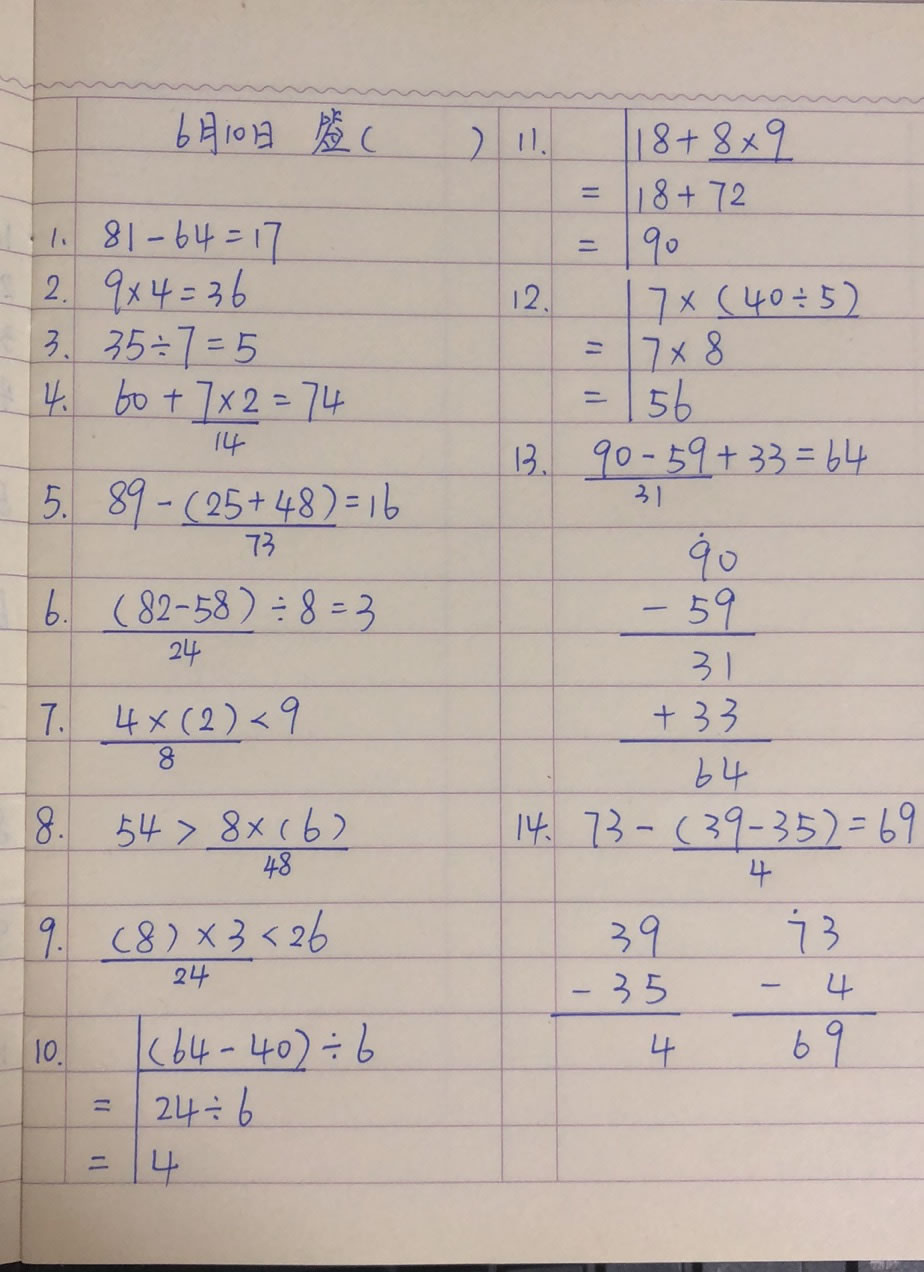 6月10日 (    )
1. 81-64=17
2. 9×4=36
3. 35÷7=5
4. 60+7×2=74
14
5. 89-(25+48)=16
73
6. (82-58)÷8=3
24
7. 4×(2)<9
8
8. 54>8×(6)
48
9. (8)×3<26
24
10. (64-40)÷6
= 24÷6
= 4
11. 18+8×9
= 18+72
= 90
12. 7×(40÷5)
= 7×8
= 56
13. 90-59+33=64
31
90
- 59
31
+ 33
64
14. 73-(39-35)=69
4
39 73
- 35 - 4
4 69